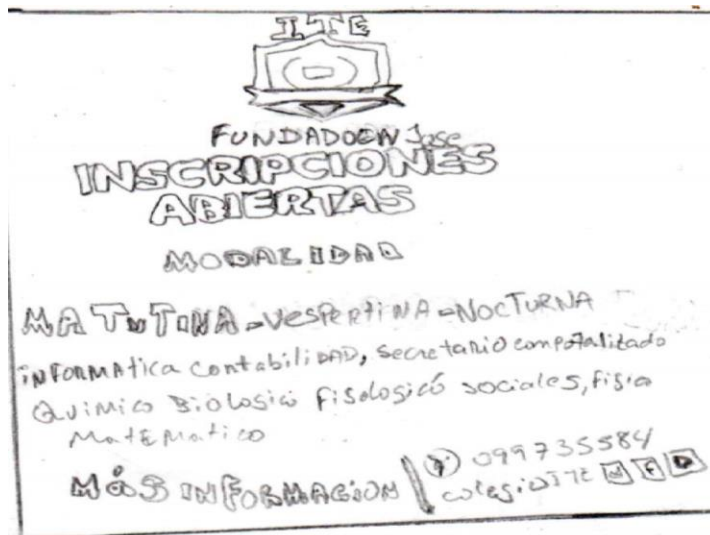 ITE
FUNDADOEN Jose
INSCRIPCIONES
ABIERTAS
MODALIDAD
MATUTINA-VESPERTINA-NOCTURNA
INFORMAtica contabiliDAD, secretario
Quimico Biologico fisologicó sociales, fisico
MatEMatico
MÁS INFORMACION
099735584
colegioITE